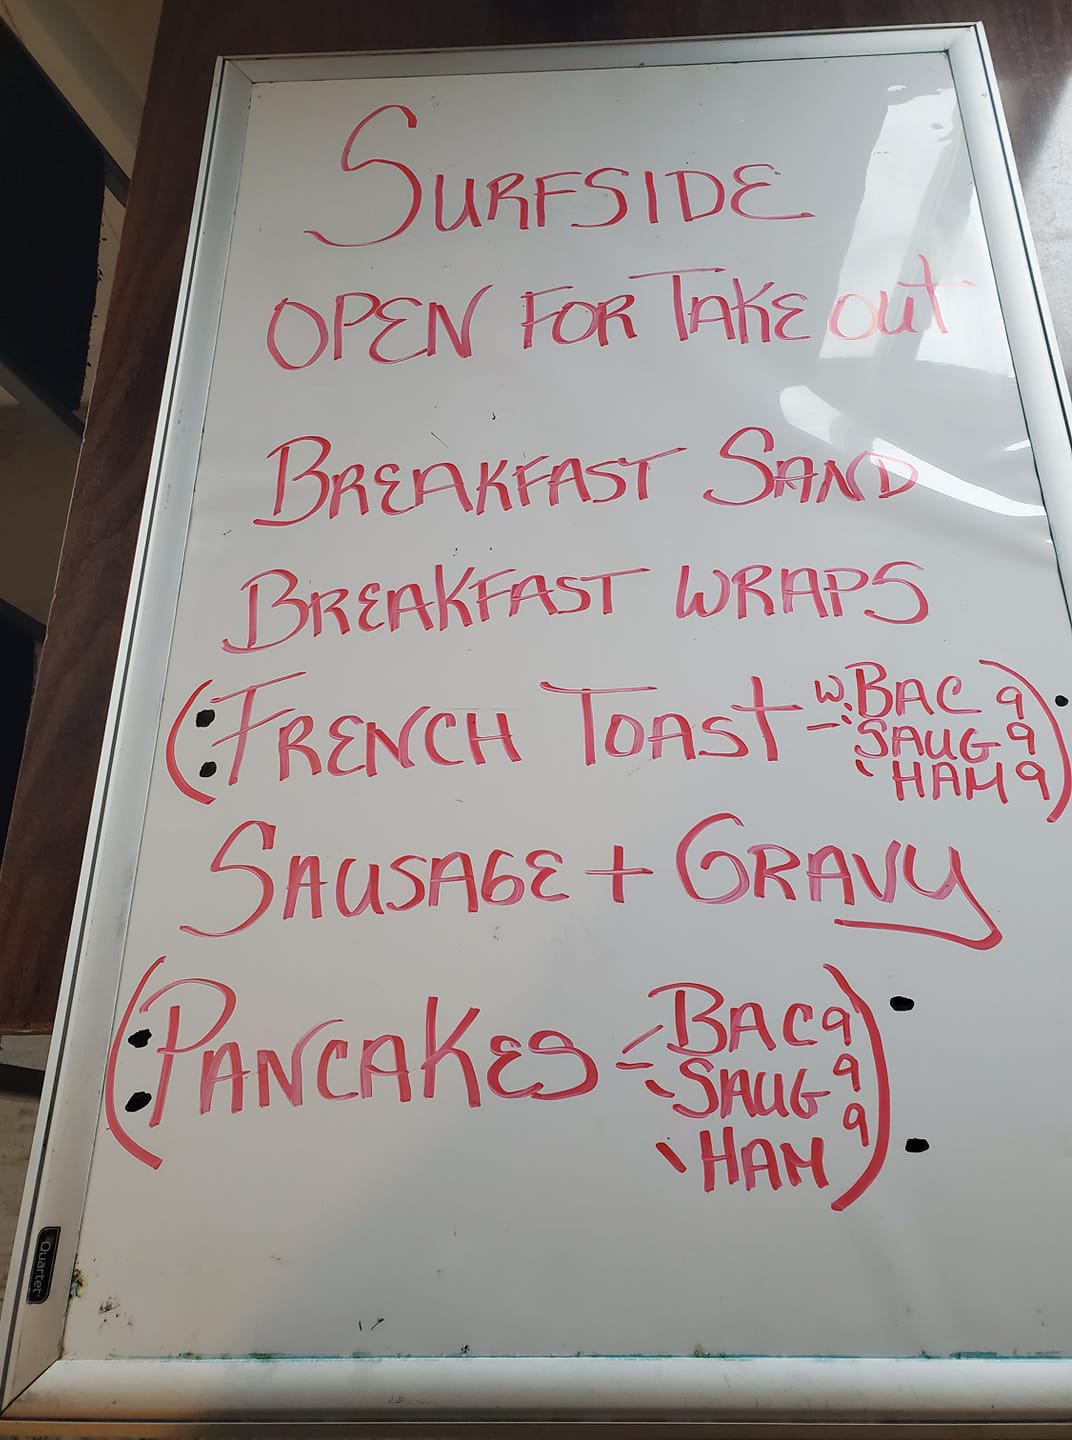 SURFSIDE
OPEN FOR TAKE OUT
BREAKFAST SAND
BREAKFAST WRAPS
(: FRENCH TOAST - W. BAC 9
SAUG 9
HAM 9)
SAUSAGE + GRAVY
(: PANCAKES - BAC 9
SAUG 9
HAM 9)
Quartet